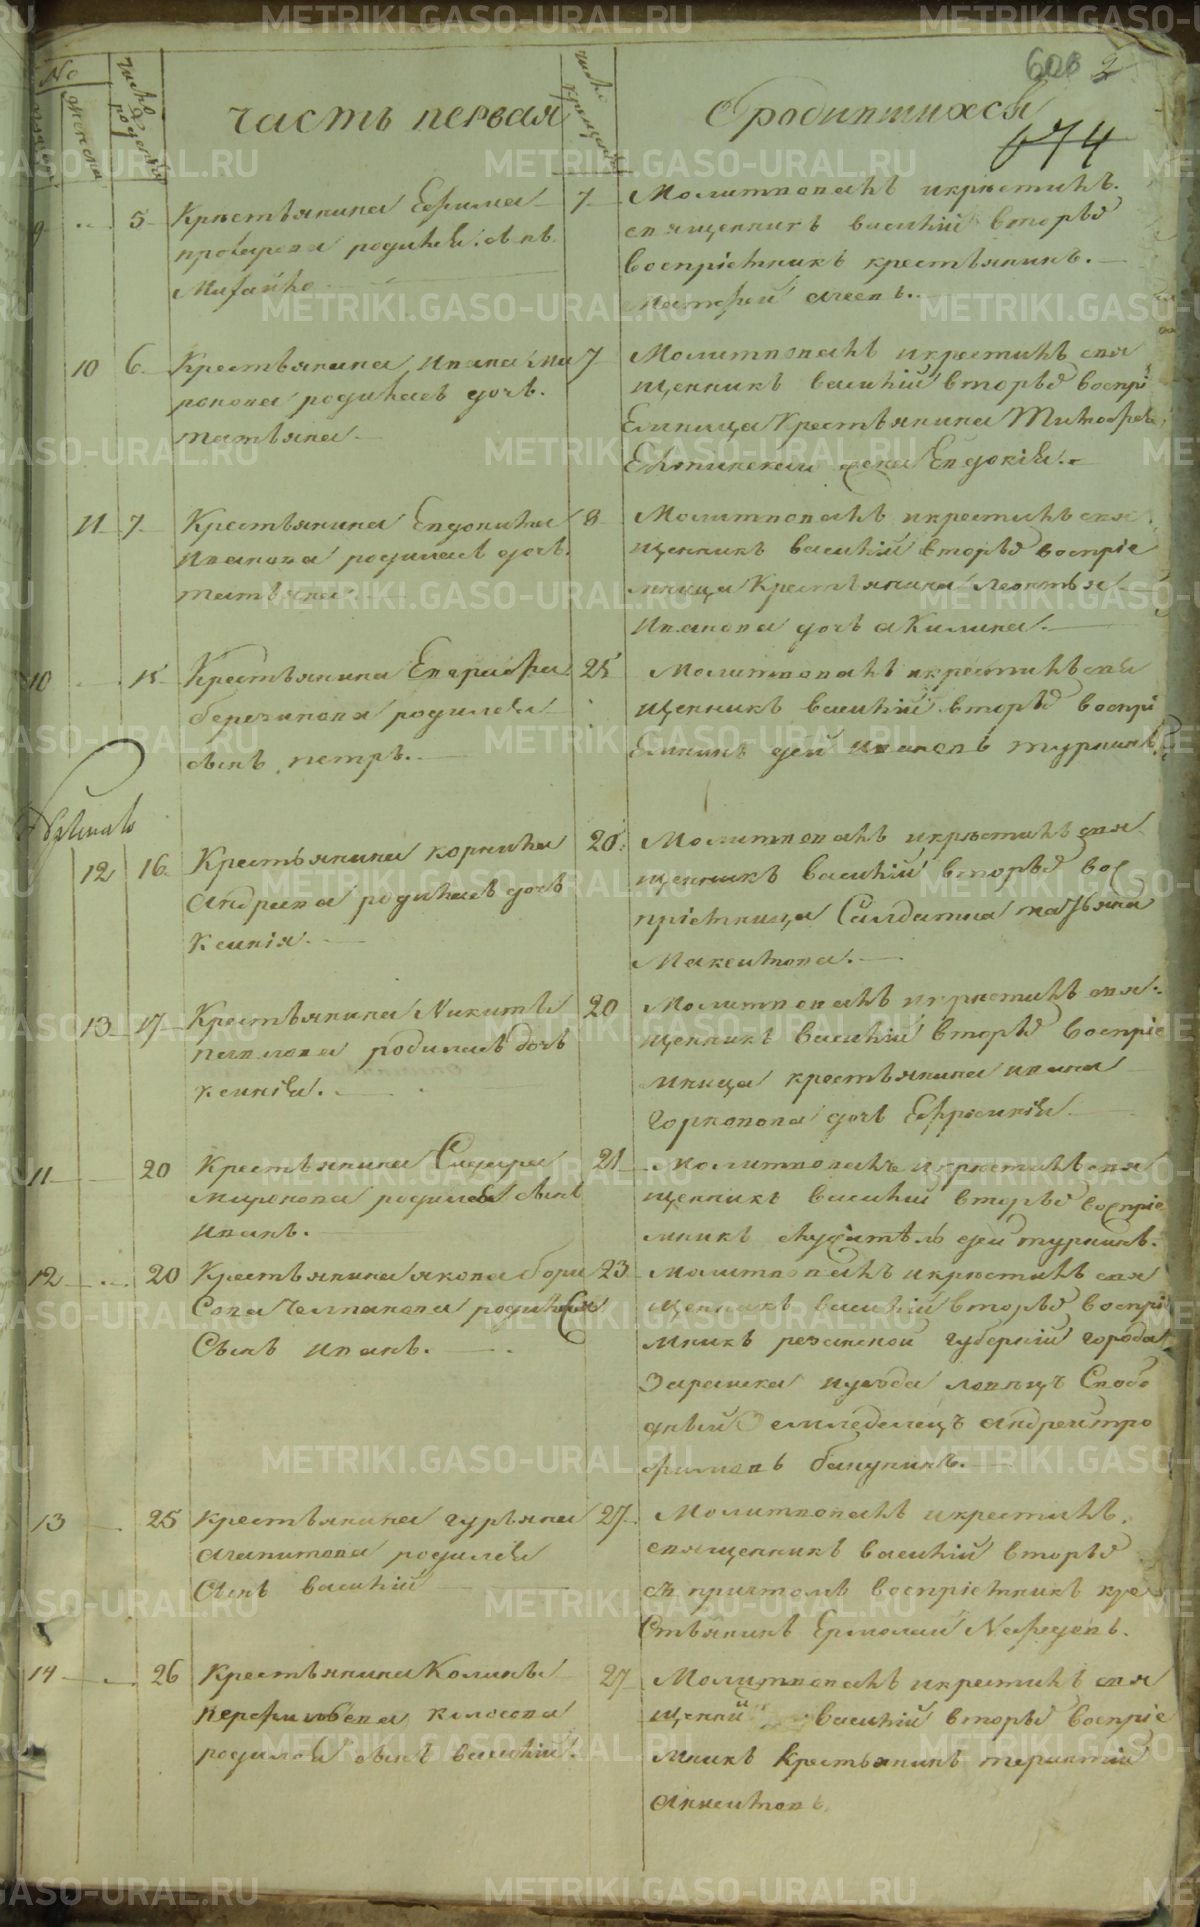 600 2
674
№
часть первая
О родившихся
число рождения
число крещения
9 5 Крестьянина Ефима
родился сынъ
Михайло
7 Молитвовалъ и крестилъ
священникъ Василий Вторыхъ
воспріемникъ крестьянинъ
10 6 Крестьянина Ивана Ми
ронова родилась дочь
татьяна
7 Молитвовалъ и крестилъ свя
щенникъ василий вторыхъ воспрі
Емница Крестьянина Тимофея
жена Евдокія
11 7 Крестьянина
Иванова родилась дочь
татьяна
8 Молитвовалъ и крестилъ свя
щенникъ василий вторыхъ воспріе
мница Крестьянина леонтья
Иванова дочь акилина
10 15 Крестьянина Евграфа
березинова родился
сынъ петръ
25 Молитвовалъ и крестилъ свя
щенникъ василий вторыхъ воспрі
Емникъ турнинъ
12 16 Крестьянина корнила
Андреева родилась дочь
Ксинія
20 Молитвовалъ и крестилъ свя
щенникъ василий вторыхъ вос
пріемница Салдатка татьяна
Максимова
13 17 Крестьянина Никиты
павлова родилась дочь
ксинія
20 Молитвовалъ и крестилъ свя
щенникъ василий вторыхъ воспріе
мница крестьянина ивана
горнопова дочь Ефросинія
11 20 Крестьянина Сидора
миронова родился сынъ
иванъ
21 Молитвовалъ и крестилъ свя
щенникъ василий вторыхъ воспріе
мникъ служитель турнинъ
12 20 Крестьянина якова бори
сова Челпанова родился
Сынъ иванъ
23 Молитвовалъ и крестилъ свя
щенникъ василий вторыхъ воспрі
мникъ резанской губерній города
Зарайска
земледелецъ андрей тро
фимовъ бакунинъ
13 25 крестьянина гурьяна
агапитова родился
Сынъ василий
27 Молитвовалъ и крестилъ
священникъ василий вторыхъ
съ причтомъ воспріемникъ кре
стьянинъ Ермолай Нефедевъ
14 26 Крестьянина
колосова
родился сынъ василий
27 Молитвовалъ и крестилъ свя
щенникъ василий вторыхъ воспріе
мникъ Крестьянинъ терентий
METRIKI.GASO-URAL.RU